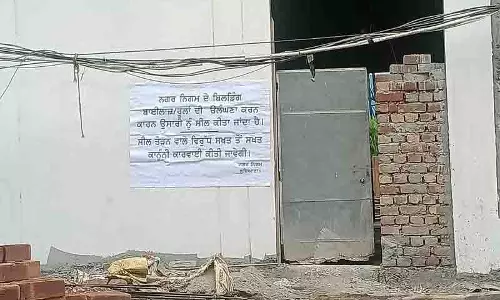 ਨਗਰ ਨਿਗਮ ਦੇ ਬਿਲਡਿੰਗ
ਬਾਈਲਾਜ਼/ਰੂਲਾਂ ਦੀ ਉਲੰਘਣਾ ਕਰਨ
ਕਾਰਨ ਉਸਾਰੀ ਨੂੰ ਸੀਲ ਕੀਤਾ ਜਾਂਦਾ ਹੈ।
ਸੀਲ ਤੋੜਨ ਵਾਲੇ ਵਿਰੁੱਧ ਸਖਤ ਤੋਂ ਸਖਤ
ਕਾਨੂੰਨੀ ਕਾਰਵਾਈ ਕੀਤੀ ਜਾਵੇਗੀ।
ਨਗਰ ਨਿਗਮ
ਲੁਧਿਆਣਾ।